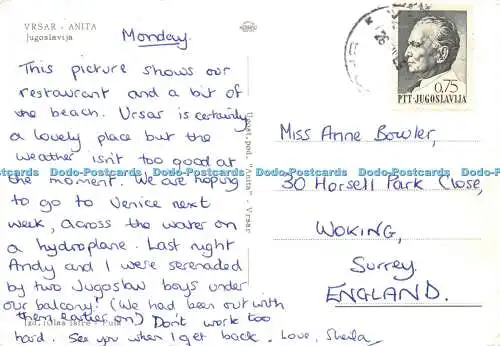 VRSAR - ANITA
Jugoslavija
Monday.
This picture shows our
restaurant and a bit of
the beach. Vrsar is certainly
a lovely place but the
weather isn't too good at
the moment. We are hoping
to go to Venice next
week, across the water on
a hydroplane. Last night
Andy and I were serenaded
by two Jugoslav boys under
our balcony! (We had been out with
them earlier on) Don't work too
hard. See you when I get back. Love, Sheila.
"Anita" - Vrsar
0,75
PTT-JUGOSLAVIJA
Miss Anne Bowler,
30 Horsell Park Close,
WOKING,
Surrey.
ENGLAND.
Dodo-Postcards Dodo-Postcards Dodo-Postcards Dodo-Postcards Dodo-Postcards
Dodo-Postcards Dodo-Postcards Dodo-Postcards Dodo-Postcards Dodo-Postcards